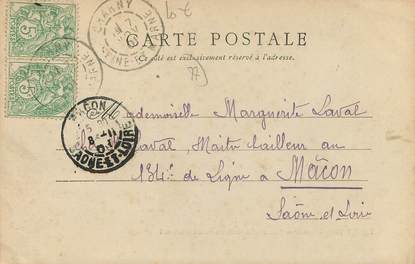 CARTE POSTALE
Ce côté est exclusivement réservé à l'adresse.
Mademoiselle Marguerite Laval
Laval, Maitre tailleur au
134e de Ligne à Mâcon
Saône et Loire
5
5
MACON
SAONE-ET-LOIRE